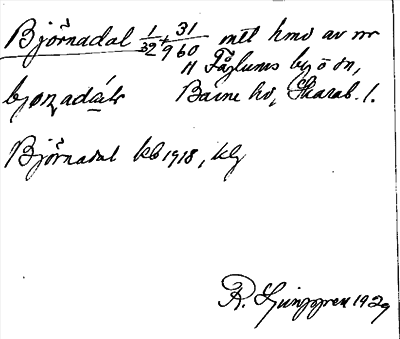 Björnadal 1/32 + 31/960 mtl hmd av nr
11 Fåglums by o sn,
Barne hd, Skarab. l.
Björnadal kb 1918, klg
R. Ljunggren 1929